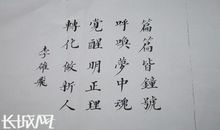 篇篇皆鐘號
呼喚夢中魂
覺醒明正理
轉化做新人
李雄飛
长城网